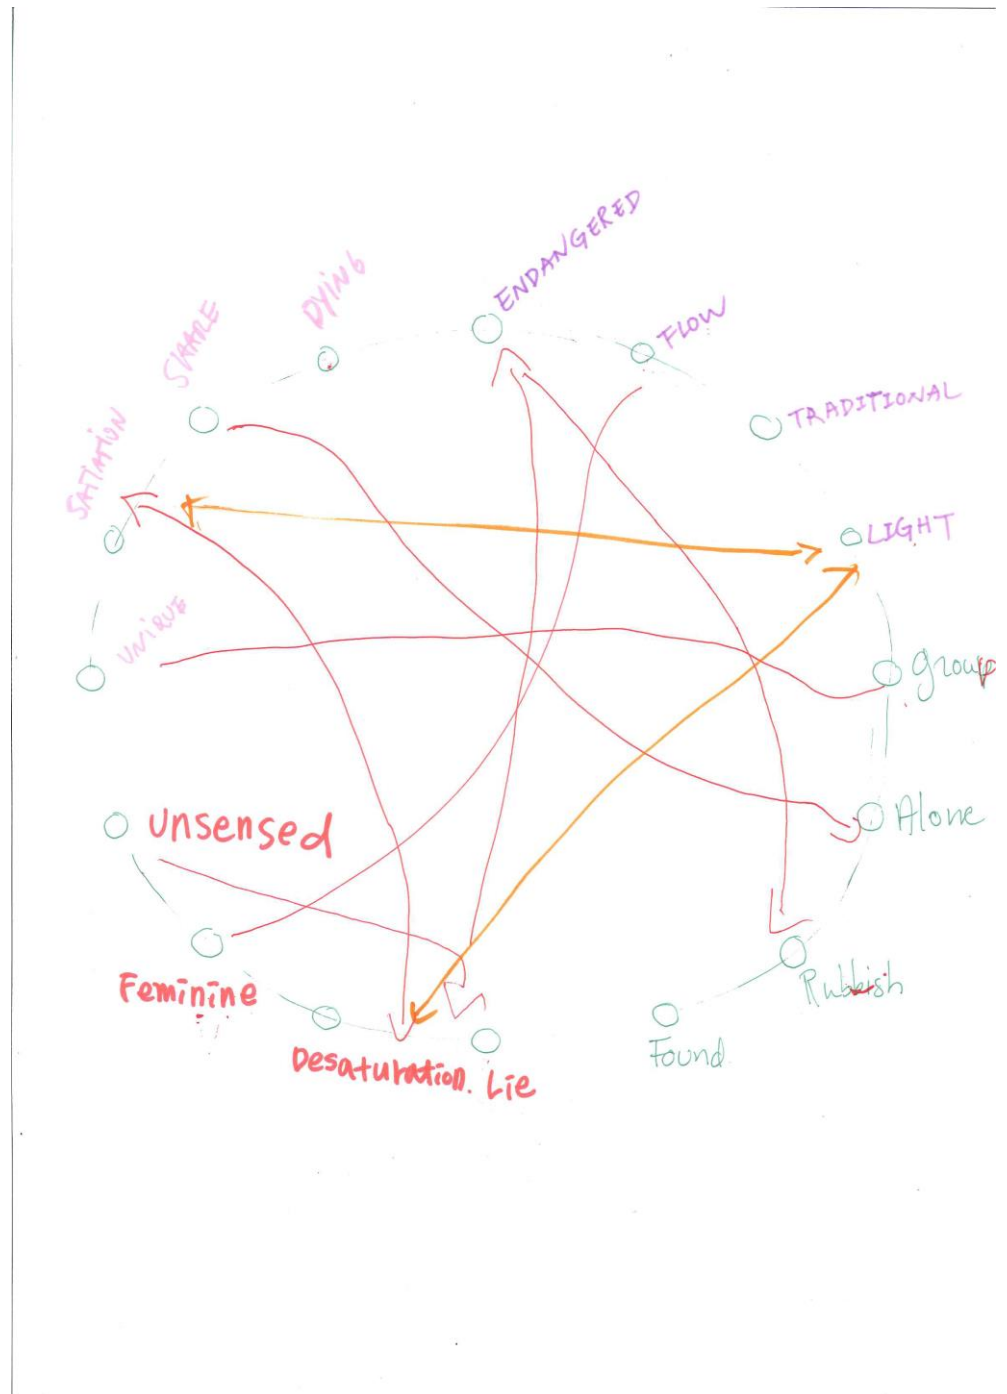 ENDANGERED
FLOW
TRADITIONAL
LIGHT
group
Alone
Rubbish
Found
Lie
Desaturation.
Feminine
Unsensed
UNIQUE
SATIATION
SHARE
DYING